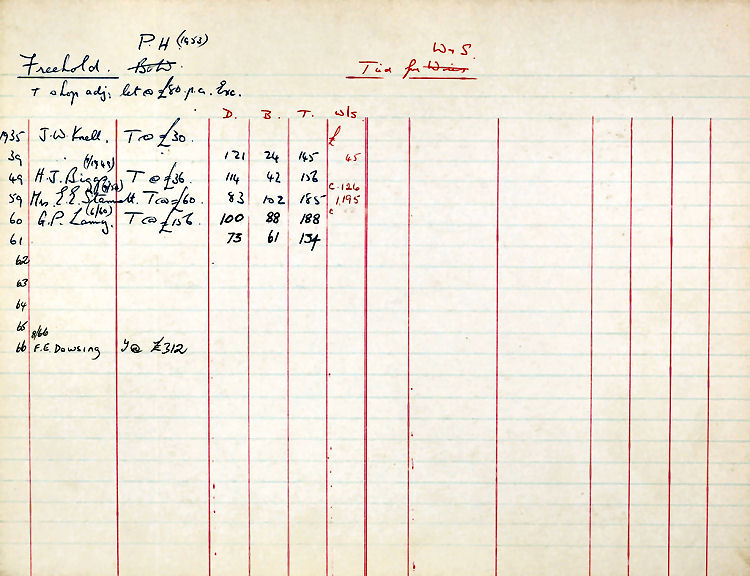 P.H (1953)
W & S.
Freehold. B&W.
Tied for Wines
+ shop adj: let @ £80 p.a. Exc.
D. B. T. W/S
1935 J.W. Knell. T @ £30. £
39 121 24 145 45
(9/1949)
49 H.J. Biggs T @ £36 114 42 156
c.126
59 Mrs. E.E. T @ £60. 83 102 185 1,195
(6/60)
60 G.P. Laing. T @ £156 100 88 188 c
61 73 61 134
62
63
64
65
8/66
66 F.E. Dowsing Y @ £312